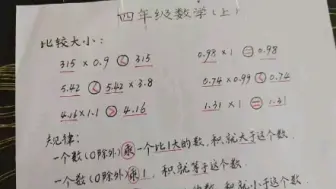 四年级数学(上)
比较大小:
315 × 0.9 < 315 0.98 × 1 = 0.98
5.42 < 5.42 × 3.8 0.74 × 0.99 < 0.74
4.16 × 1.1 > 4.16 1.31 × 1 = 1.31
规律:
一个数(0除外)乘一个比1大的数,积就大于这个数
一个数(0除外)乘1,积就等于这个数
的数,积就小于这个数